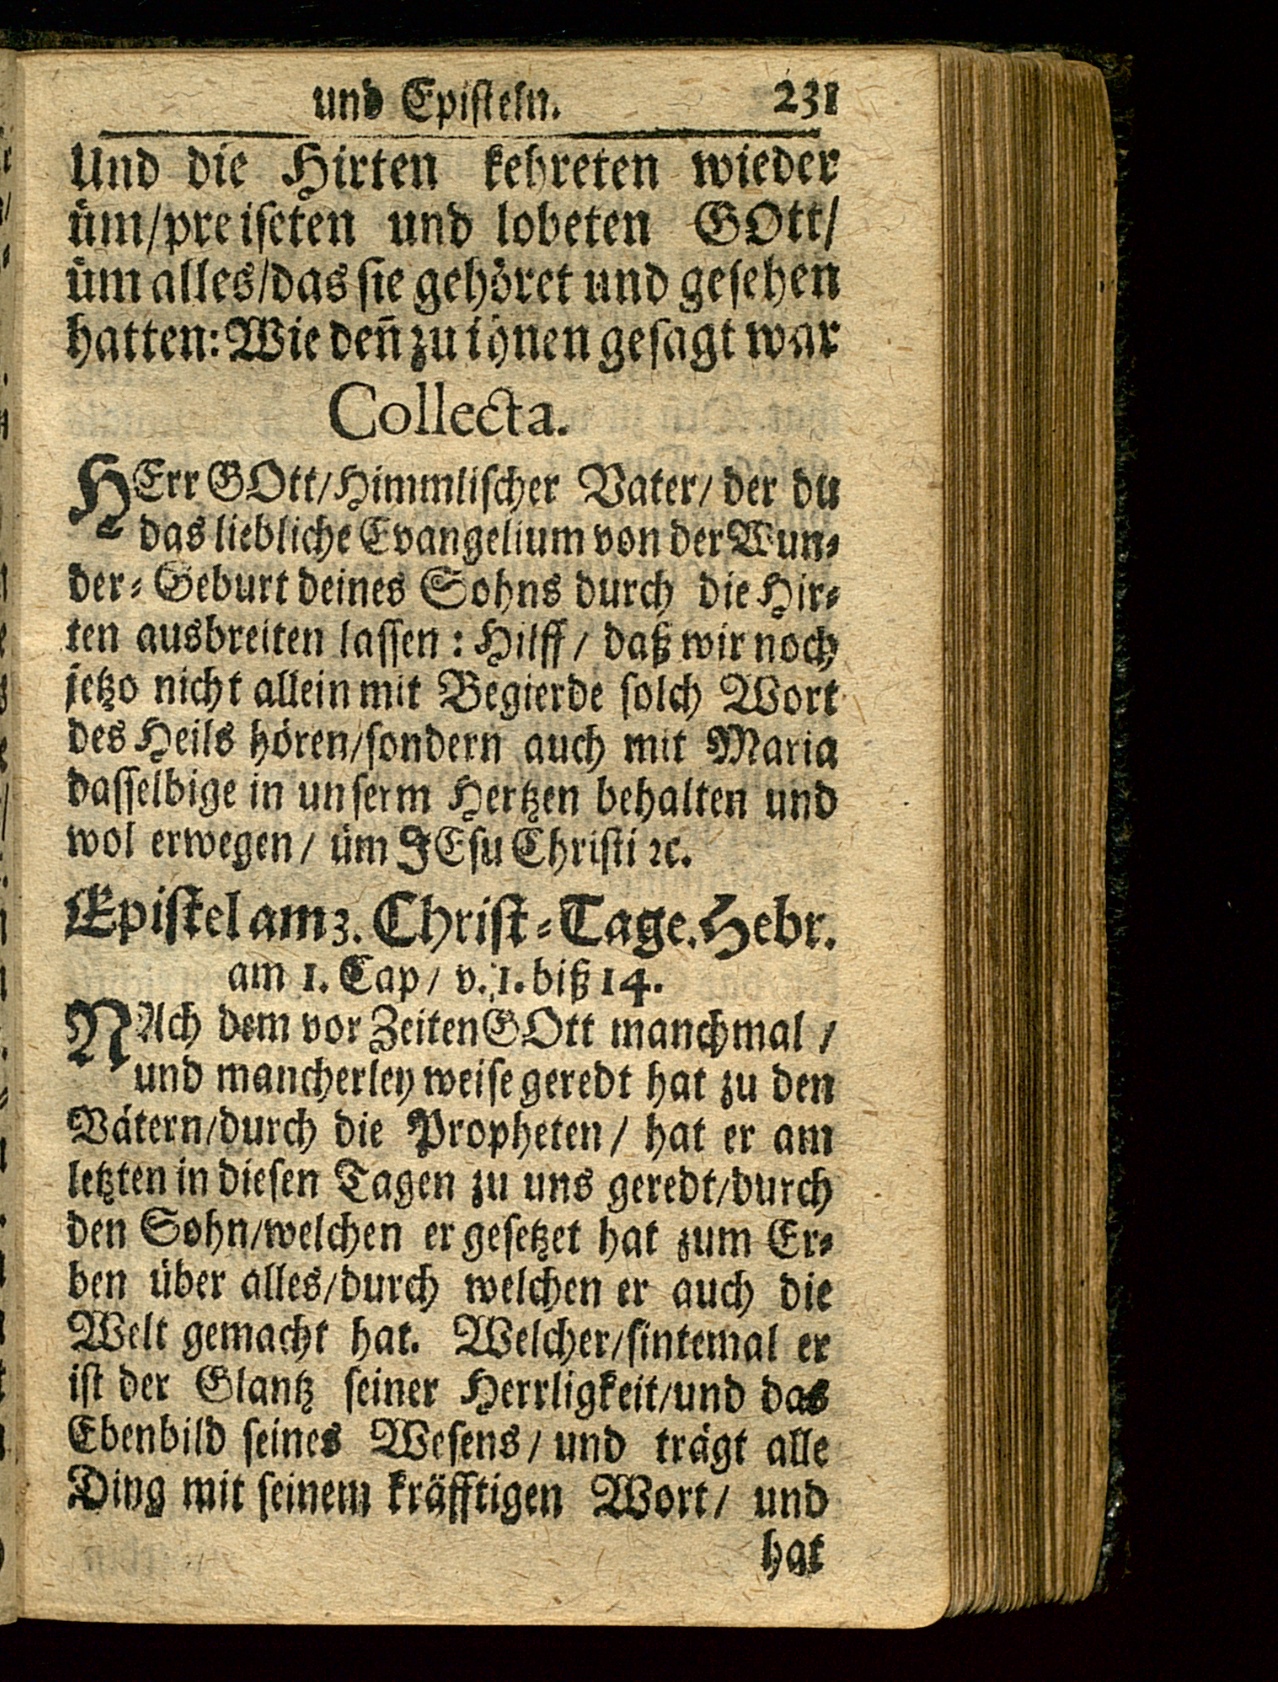 und Episteln. 231
Und die Hirten kehreten wieder
üm/preiseten und lobeten GOtt/
üm alles/das sie gehöret und gesehen
hatten: Wie deñ zu ihnen gesagt war
Collecta.
HErr GOtt/Himmlischer Vater/ der du
das liebliche Evangelium von der Wun-
der-Geburt deines Sohns durch die Hir-
ten ausbreiten lassen: Hilff/ daß wir noch
jetzo nicht allein mit Begierde solch Wort
des Heils hören/sondern auch mit Maria
dasselbige in unserm Hertzen behalten und
wol erwegen/ üm JEsu Christi ꝛc.
Epistel am 3. Christ-Tage. Hebr.
am 1. Cap/ v. 1. biß 14.
NAch dem vor Zeiten GOtt manchmal /
und mancherley weise geredt hat zu den
Vätern/durch die Propheten/ hat er am
letzten in diesen Tagen zu uns geredt/durch
den Sohn/welchen er gesetzet hat zum Er-
ben über alles/durch welchen er auch die
Welt gemacht hat. Welcher/sintemal er
ist der Glantz seiner Herrligkeit/und das
Ebenbild seines Wesens/ und trägt alle
Ding mit seinem kräfftigen Wort/ und
hat